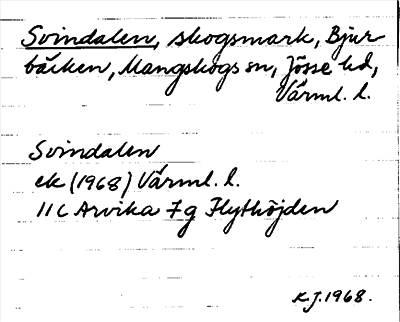 Svindalen, skogsmark, Bjur-
bäcken, Mangskogs sn, Jösse hd,
Värml. l.
Svindalen
ek (1968) Värml. l.
11C Arvika 7g Flythöjden
K.J. 1968.